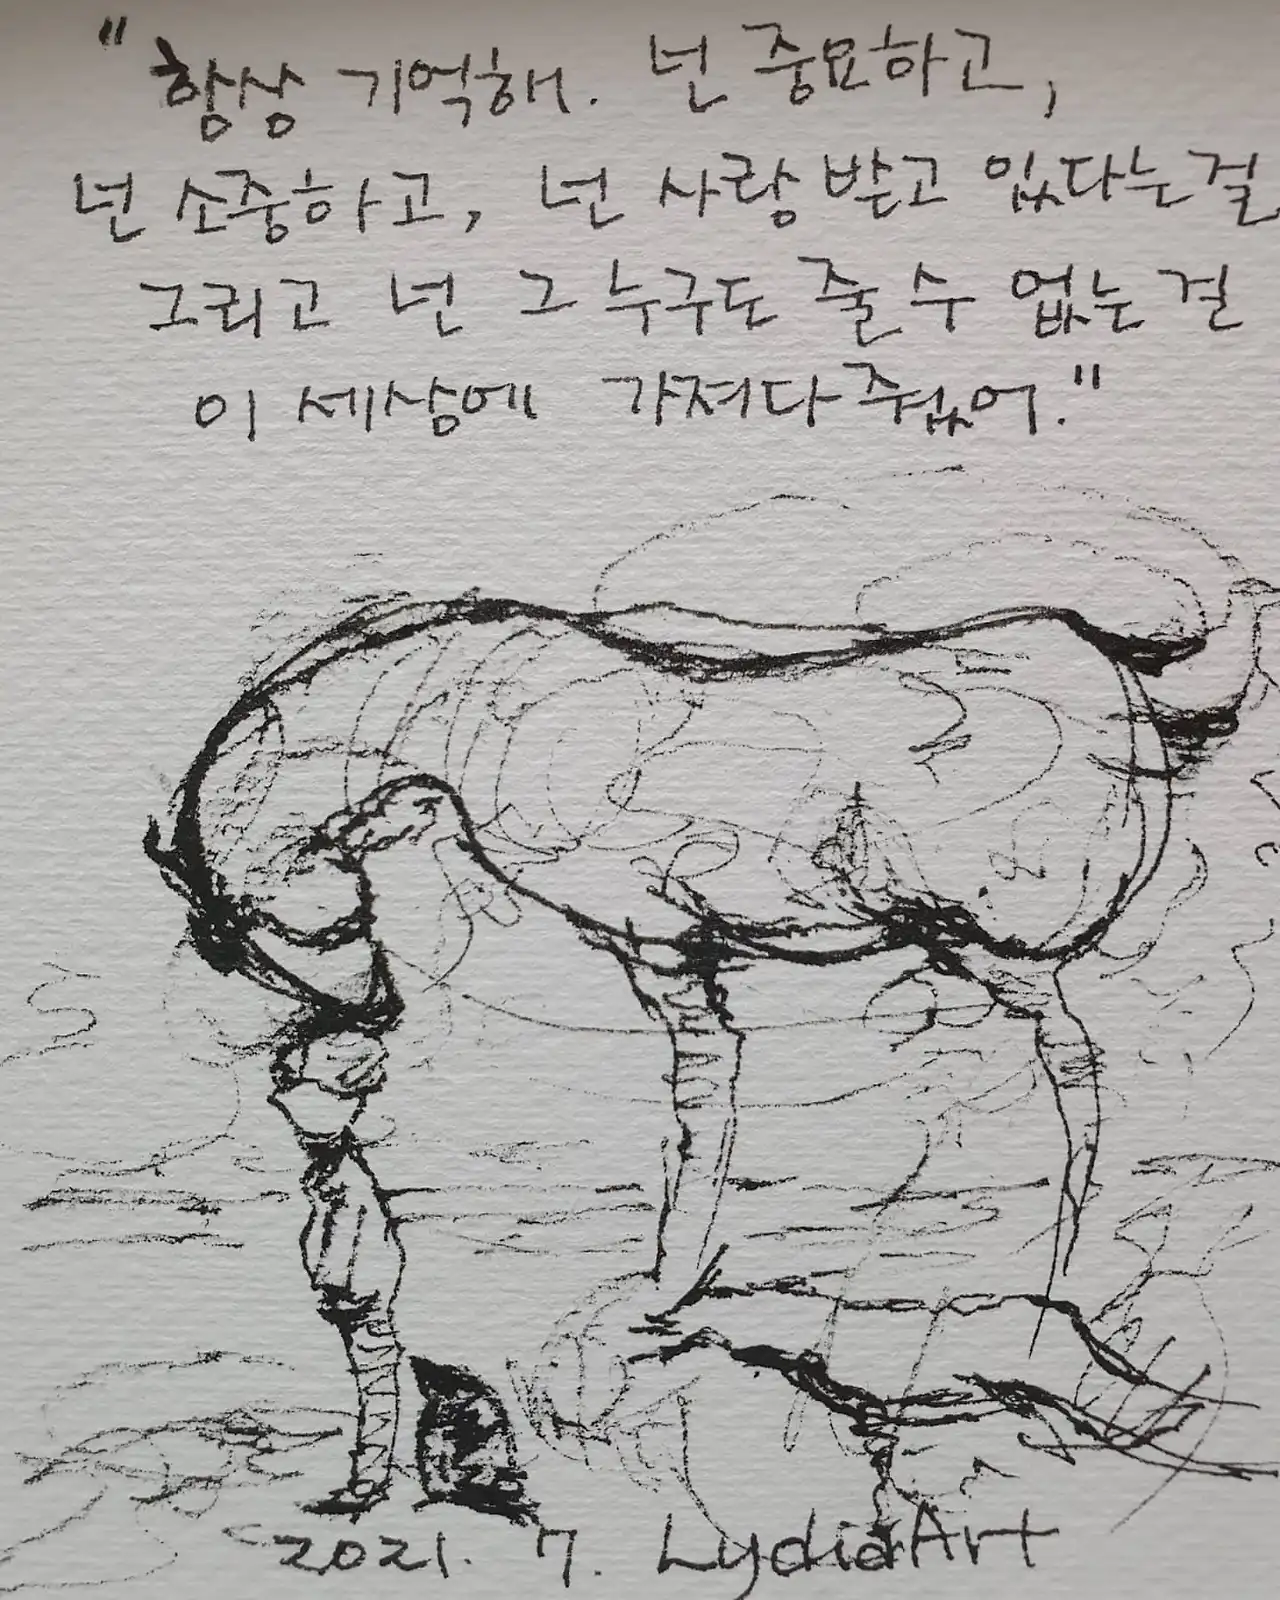 "항상 기억해. 넌 중요하고,
넌 소중하고, 넌 사랑 받고 있다는걸,
그리고 넌 그 누구도 줄 수 없는 걸
이 세상에 가져다 줬어."
2021. 7. LydiaArt